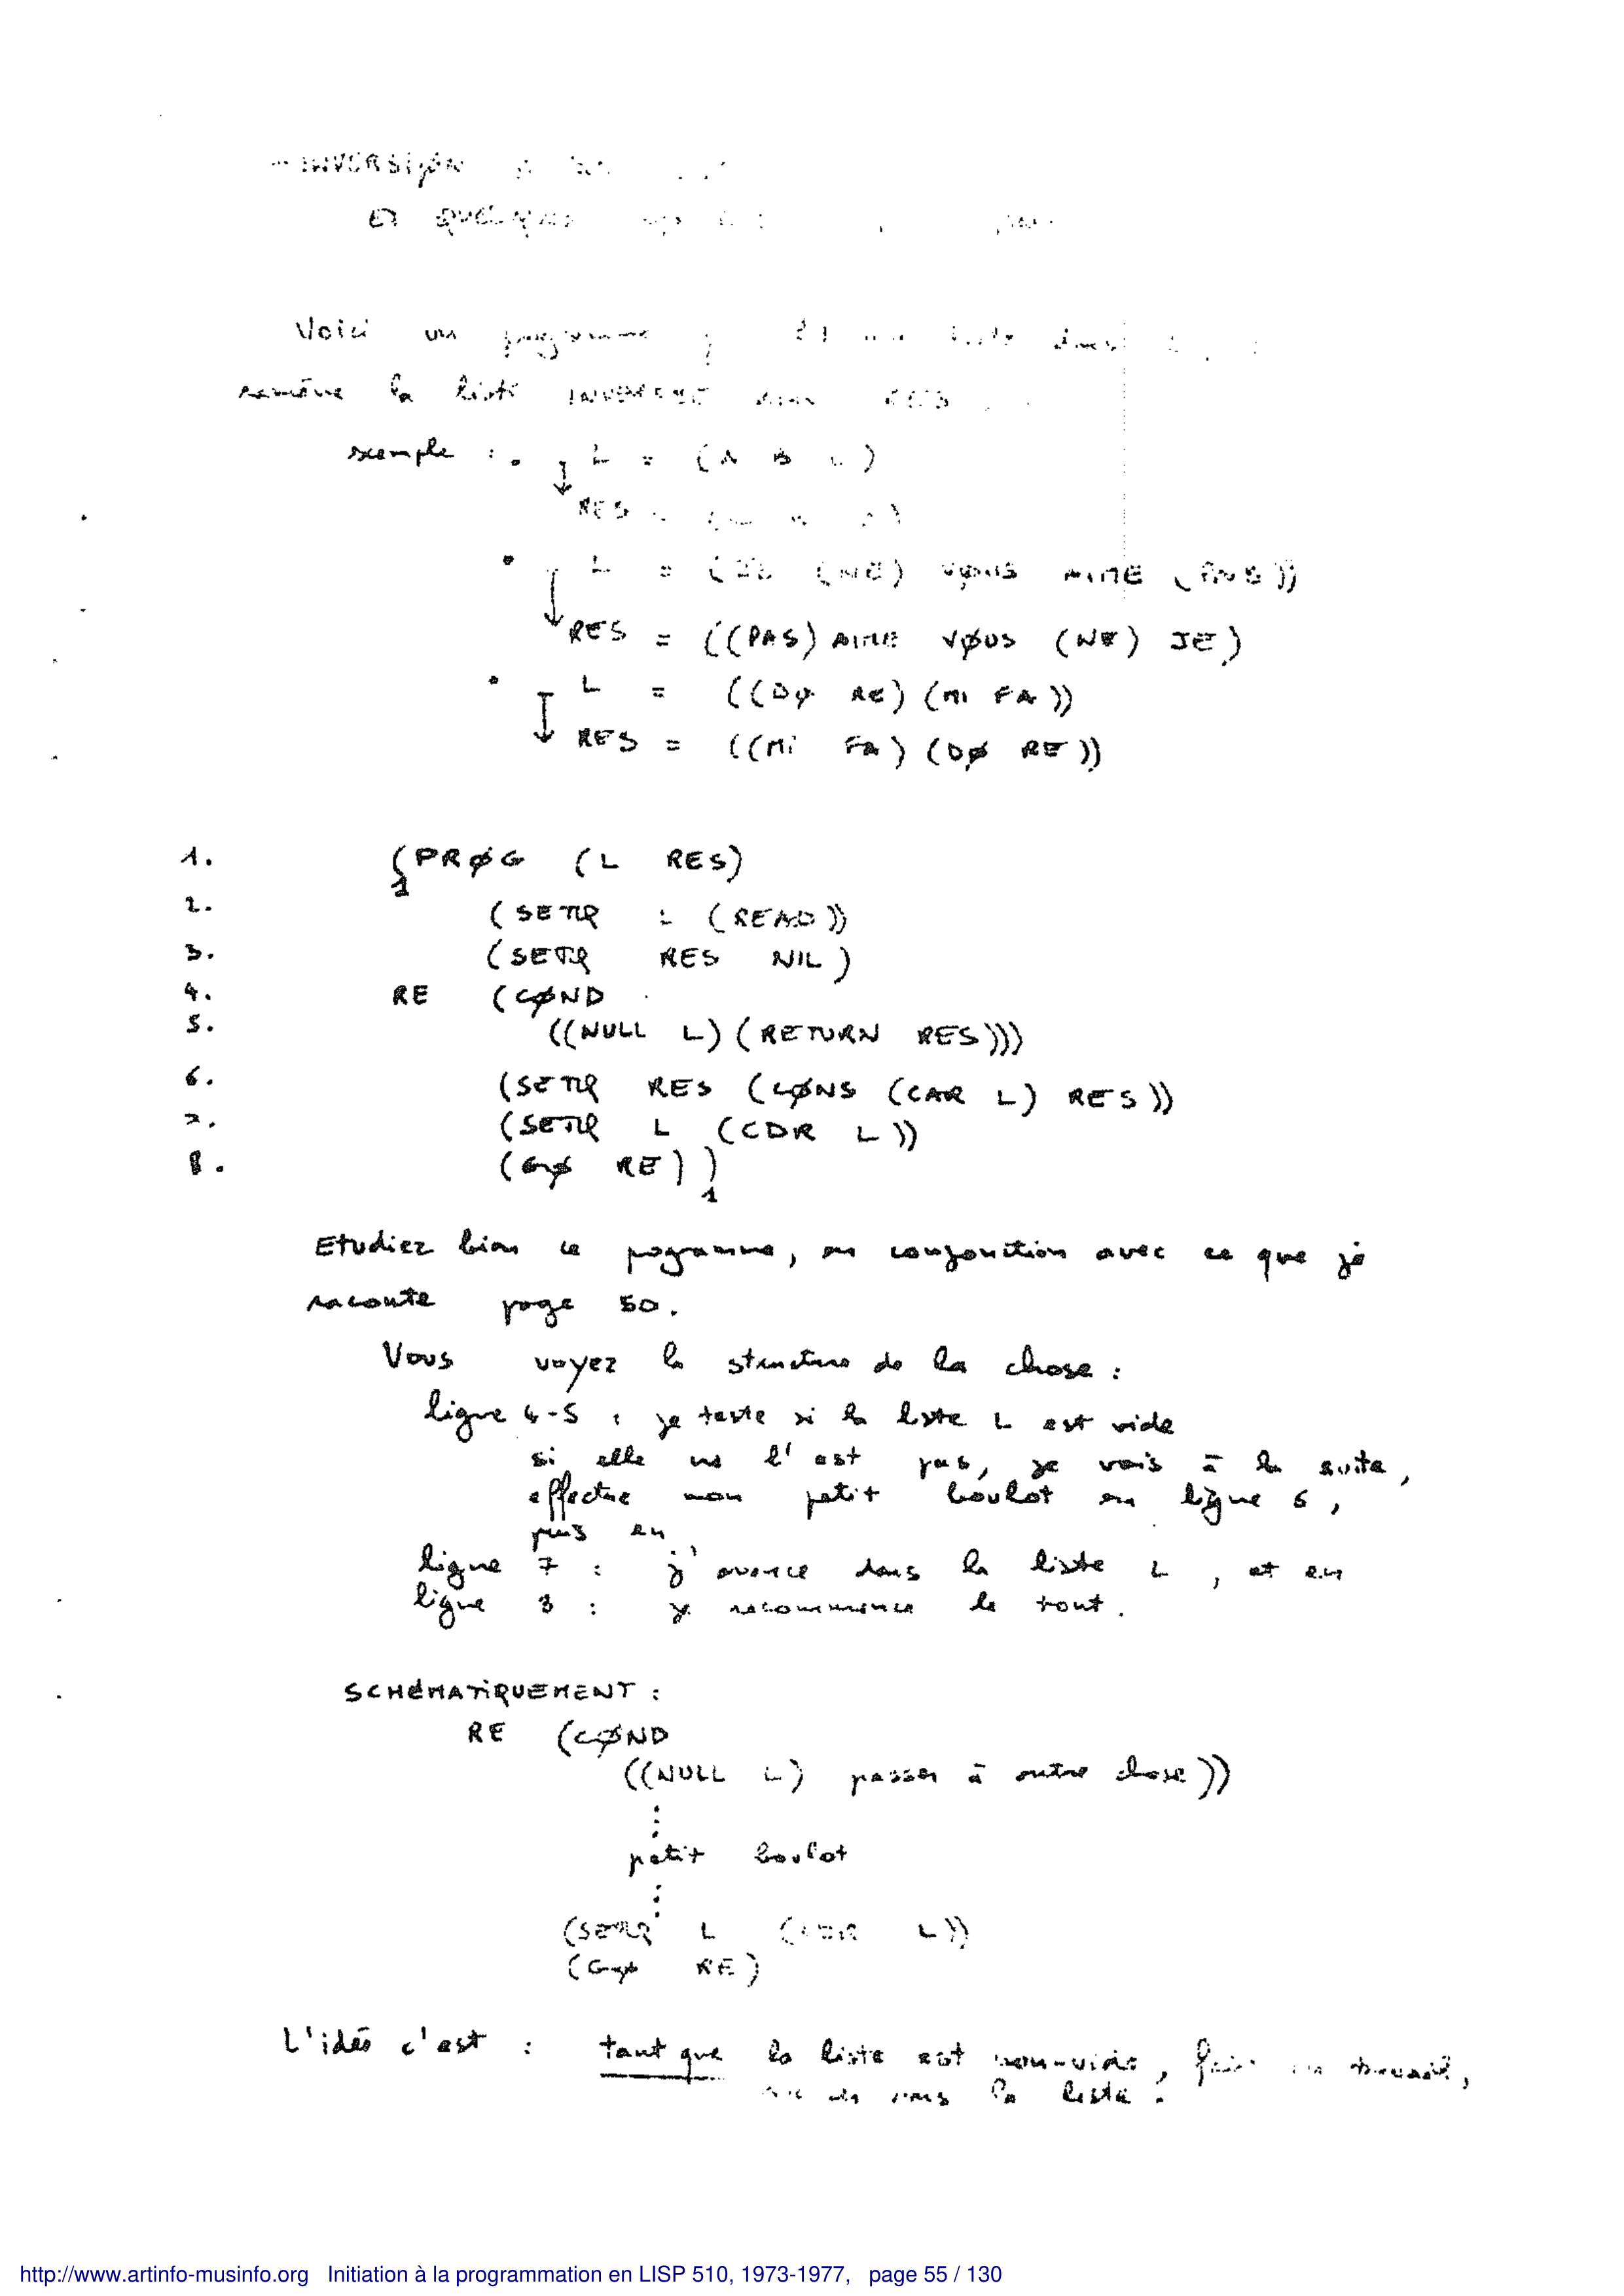 INVERSIØN
ET QUELQUES
Voici un programme
ramène la liste INVERSÉE dans RES
exemple : . L = (A B C)
RES
. L = (JE (NE) VØUS AIME (PAS))
RES = ((PAS) AIME VØUS (NE) JE)
. L = ((DØ RE) (MI FA))
RES = ((MI FA) (DØ RE))
1. (PRØG (L RES)
1
2. (SETQ L (READ))
3. (SETQ RES NIL)
4. RE (CØND
5. ((NULL L) (RETURN RES)))
6. (SETQ RES (CØNS (CAR L) RES))
7. (SETQ L (CDR L))
8. (GØ RE) )
1
Etudiez bien ce pogramme, en conjonction avec ce que je
raconte page 50.
Vous voyez la structure de la chose :
ligne 4-5 : je teste si la liste L est vide
si elle ne l'est pas, je vais à la suite,
effectue mon petit boulot en ligne 6,
puis en
ligne 7 : j'avance dans la liste L, et en
ligne 8 : je recommence le tout.
SCHéMATiQUEMENT :
RE (CØND
((NULL L) passer à autre chose))
⋮
petit boulot
⋮
(SETQ L (CDR L))
(GØ RE)
L'idée c'est : tant que la liste est non-vide, travail,
la liste.
http://www.artinfo-musinfo.org Initiation à la programmation en LISP 510, 1973-1977, page 55 / 130